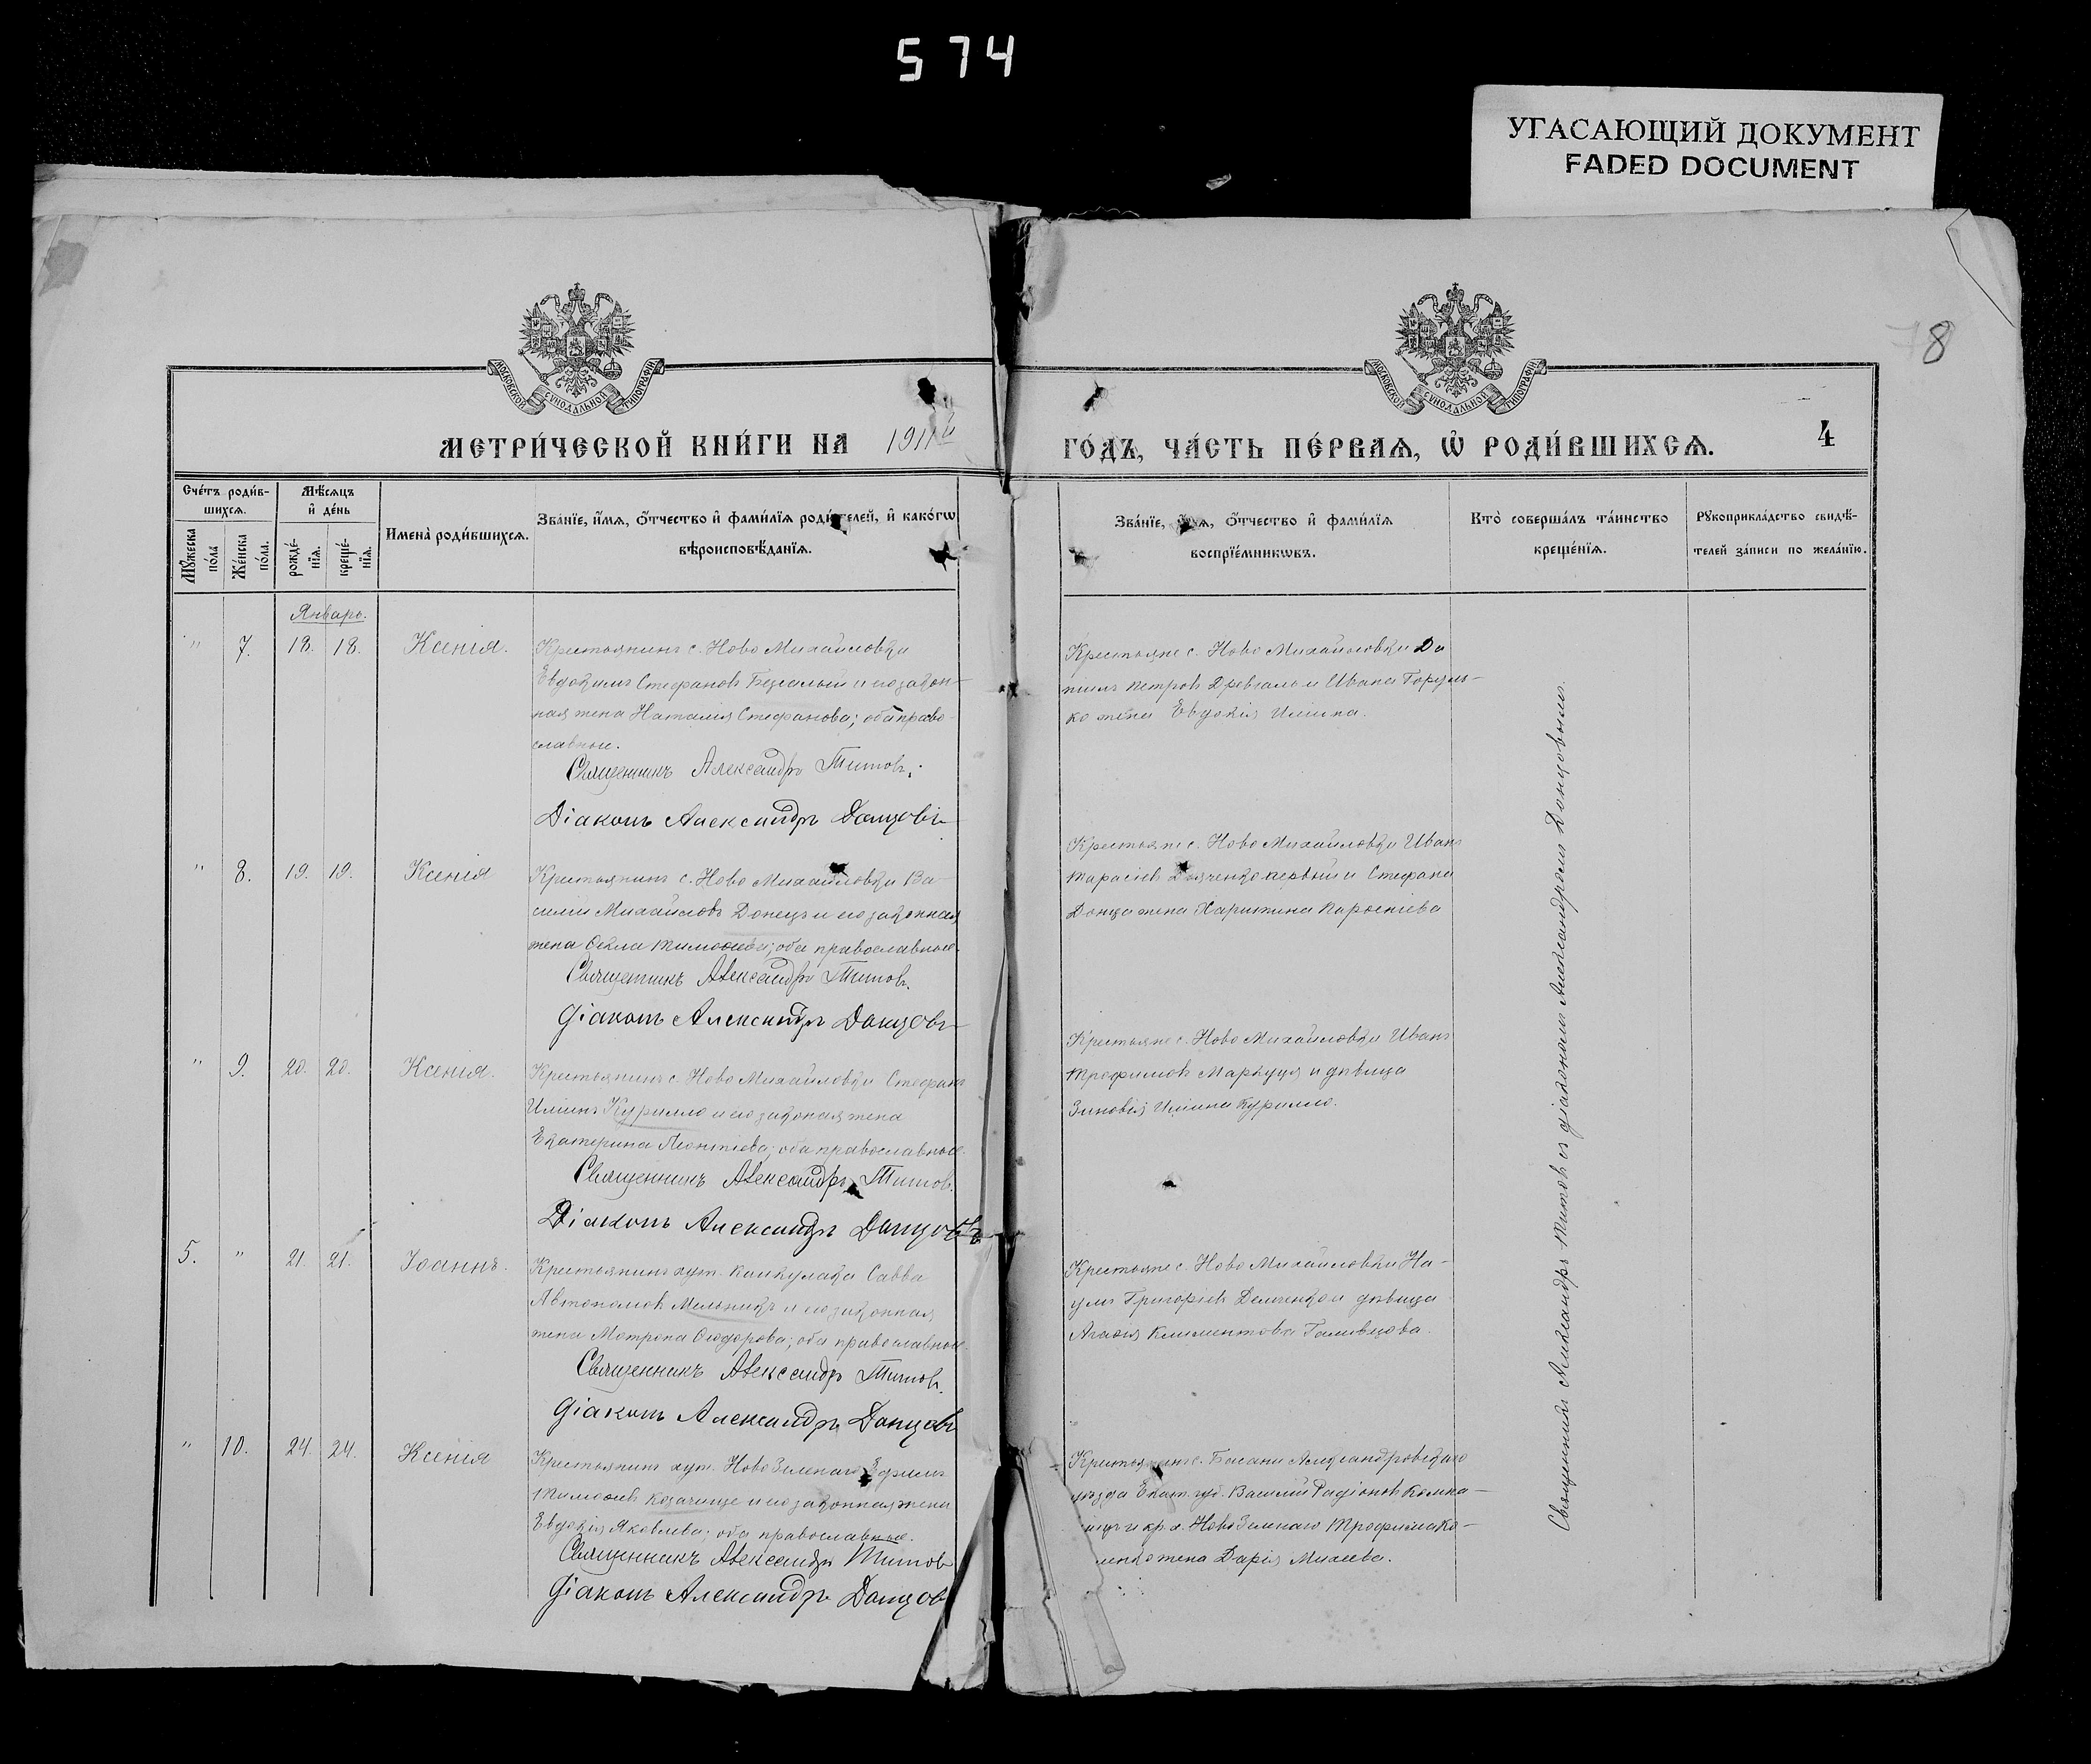 574
УГАСАЮЩИЙ ДОКУМЕНТ
FADED DOCUMENT
8
МОСКОВСКОЙ СѴНОДАЛЬНОЙ ТИПОГРАФІИ
МОСКОВСКОЙ СѴНОДАЛЬНОЙ ТИПОГРАФІИ
МЕТРИ́ЧЕСКОЙ КНИ́ГИ НА 1911й
ГО́ДЪ, ЧА́СТЬ ПЕ́РВАѦ, Ѡ҆ РОДИ́ВШИХСѦ.
4
Сче́тъ роди́в-
шихсѧ.
Мꙋ́жеска по́ла
Же́нска по́ла.
Мѣ́сѧцъ
и҆ де́нь
рожде́-
нїѧ.
креще́-
нїѧ.
Имена̀ роди́вшихсѧ.
Зва́нїе, и҆́мѧ, ѻ҆́тчество и҆ фами́лїѧ роди́телей, и҆ како́гѡ
вѣроисповѣ́данїѧ.
Зва́нїе, и҆́мѧ, ѻ҆́тчество и҆ фами́лїѧ
воспрїе́мникѡвъ.
Кто̀ соверша́лъ та́инство
креще́нїѧ.
Рꙋкоприкла́дство свидѣ́-
телей за́писи по жела́нїю.
Январь.
" 7. 18. 18. Ксенія.
Крестьянинъ с. Ново Михайловки
Евдокимъ Стефановъ и его закон-
ная жена Наталія Стефанова; оба право-
славные.
Священникъ Александръ Титовъ.
Діаконъ Александръ Донцовъ
Крестьяне с. Ново Михайловки Да
ніилъ Петровъ и Ивана Горуль-
ко жена Евдокія Ильина.
" 8. 19. 19. Ксенія
Крестьянинъ с. Ново Михайловки Ва-
силій Михайловъ Донецъ и его законная
жена Ѳекла Тимоѳеева; оба православные.
Священникъ Александръ Титовъ.
Діаконъ Александръ Донцовъ
Крестьяне с. Ново Михайловки Иванъ
Тарасіевъ первый и Стефана
Донца жена Харитина
" 9. 20. 20. Ксенія.
Крестьянинъ с. Ново Михайловки Стефанъ
Ильинъ Курилло и его законая жена
Екатерина Леонтіева; оба православные.
Священникъ Александръ Титовъ.
Діаконъ Александръ Донцовъ
Крестьяне с. Ново Михайловки Иванъ
Трофимовъ Маркуця и дѣвица
Зиновія Ильина Курилло.
5. " 21. 21. Іоаннъ.
Крестьянинъ хут. Савва
Автономовъ Мельникъ и его законная
жена Матрона Ѳеодорова; оба православные.
Священникъ Александръ Титовъ.
Діаконъ Александръ Донцовъ
Крестьяне с. Ново Михайловки На-
умъ Григоріевъ Демченко и дѣвица
Агафія Климентова
" 10. 24. 24. Ксенія
Крестьянинъ хут. Ново Зеленаго Ефимъ
Тимоѳеевъ Козачище и его законная жена
Евдокія Яковлева; оба православные.
Священникъ Александръ Титовъ
Діаконъ Александръ Донцов
с. Басани Александровскаго
уѣзда Екат. губ. Василій Радіоновъ
и кр. х. Ново Зеленаго Трофима Ко-
жена Дарія Михеева.
Священникъ Александръ Титовъ съ діакономъ Александромъ Донцовымъ.